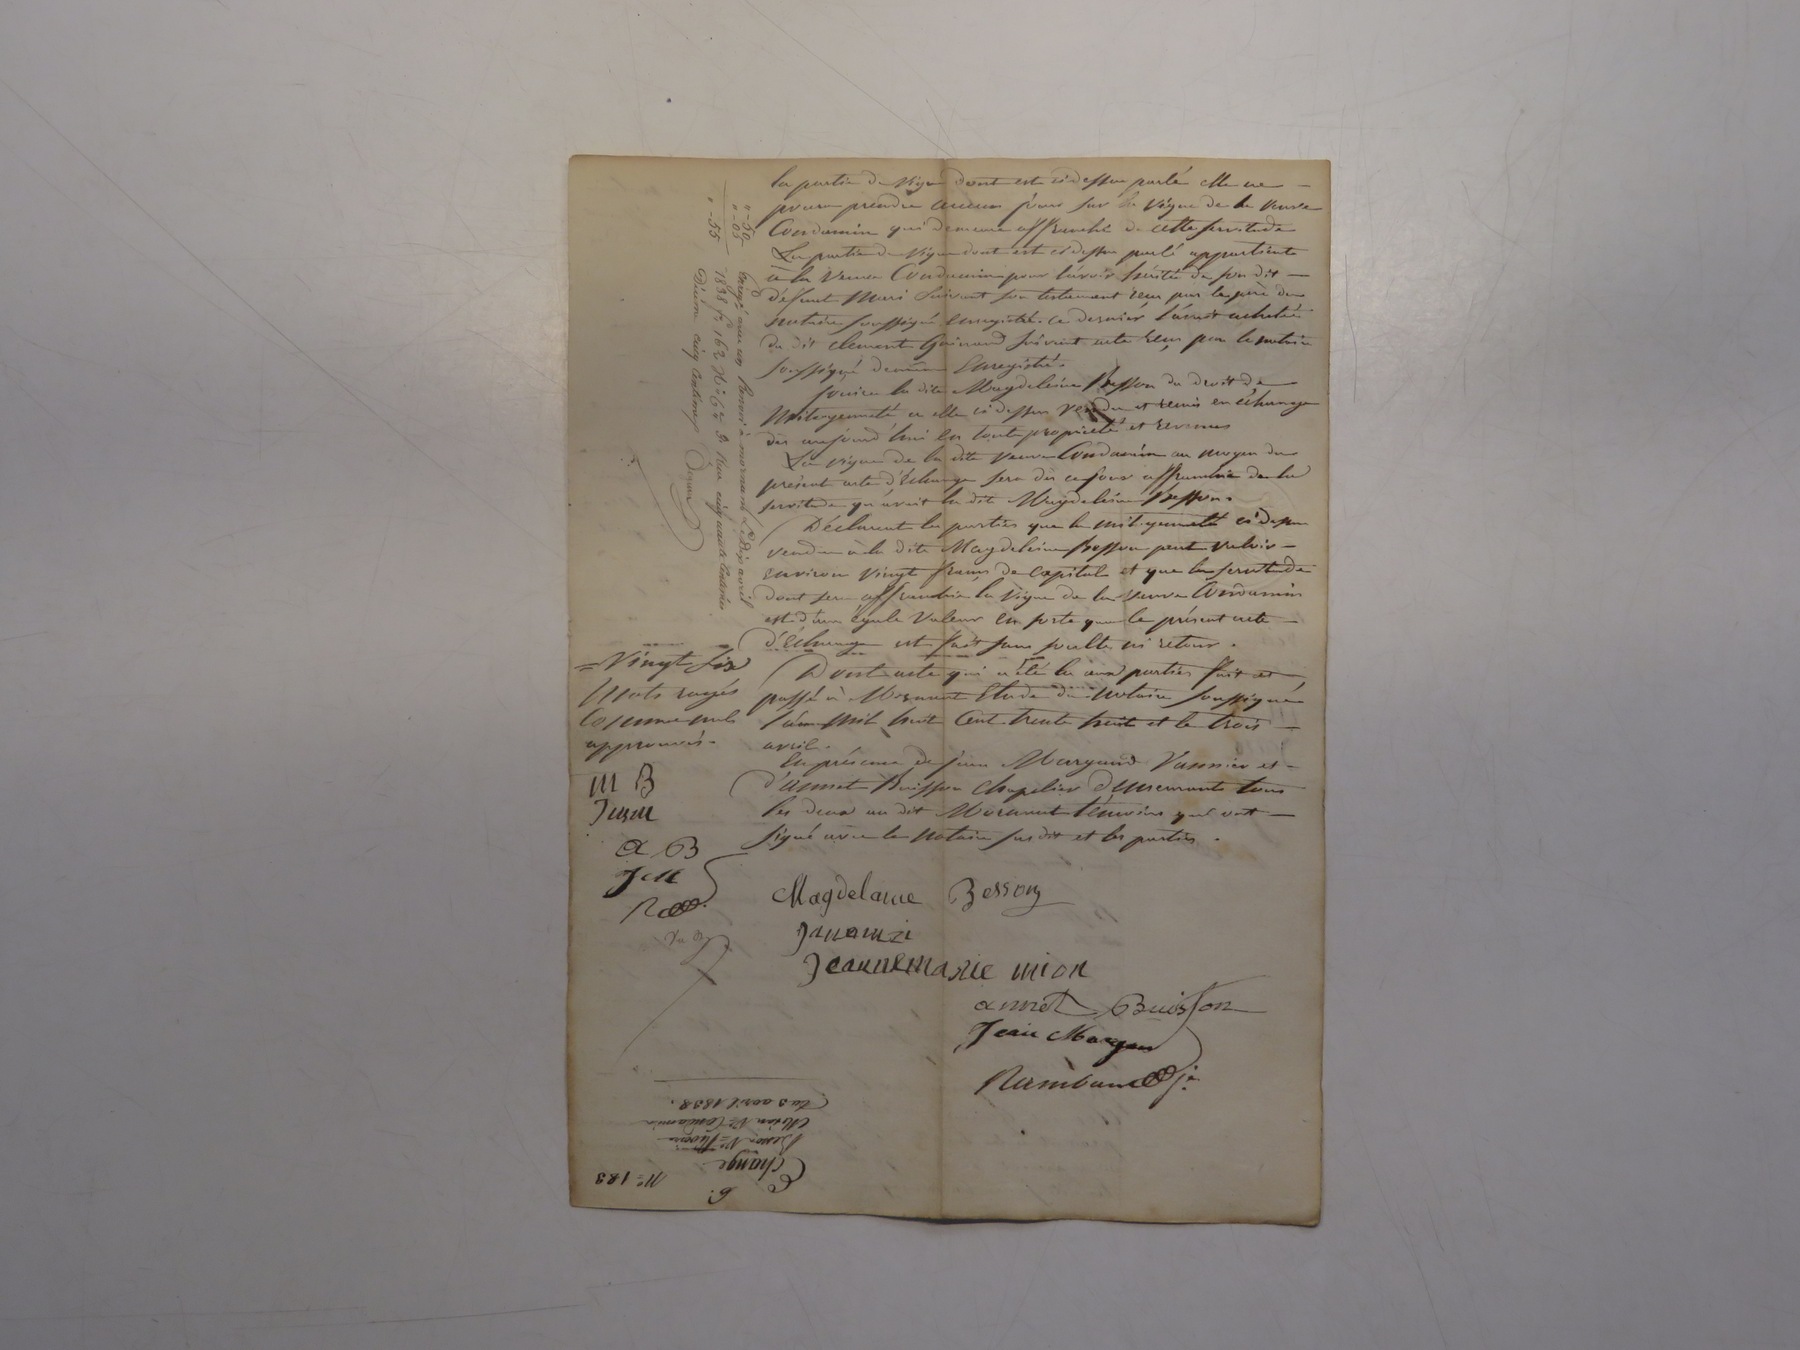 la partie de vigne dont est ci dessus parlé elle ne
pourra prendre aucun jour sur la vigne de la veuve
Condamin qui demeure affranchi de cette servitude
La partie de vigne dont est ci dessus parlé appartient
à la veuve Condamin pour l'avoir hérité de son dit
défunt mari suivant son testament reçu par le père du
notaire soussigné enregistré. ce dernier l'avait achetée
du dit clement Guinand suivant acte reçu par le notaire
soussigné de même Enregistré.
Jouira la dite Magdeleine Besson du droit de
Mitoyenneté a elle ci dessus vendu et remis en échange
dès aujourd'hui en toute propriété et revenus
La vigne de la dite veuve Condamin au moyen du
présent acte d'Echange sera dès ce jour affranchie de la
servitude qu'avait la dite Magdeleine Besson.
Déclarent les parties que la mitoyenneté ci dessus
vendue à la dite Magdeleine Besson peut valoir
environ vingt francs de capital et que la servitude
dont sera affranchie la vigne de la veuve Condamin
est d'une égale valeur en sorte que le présent acte
d'Echange est fait sans soulte ni retour.
Dont acte qui a été lu aux parties fait et
passé à Mornant Etude du notaire soussigné
l'an mil huit Cent trente huit et le trois
avril.
En présence de Jean Margand Vannier et
d'annet Buisson chapelier demeurants tous
les deux au dit Mornant témoins qui ont
signé avec le notaire susdit et les parties.
= Vingt six
Mots rayés
Comme nuls
approuvés.
m B
Jmm
a B
JM
R
Magdelaine Besson
Jeannemarie mion
annet Buisson
Jean Margan
Rambaud je
"-50
"-05
"-55
Enregé avec un Renvoi à mornant Le Dix avril
1838 fo 62 Ro Co 9. Reçu cinquante Centimes
Décime cinq Centimes
No 183
6.
Echange
Besson Ve
Mion Ve Condamin
Du 3 avril 1838.